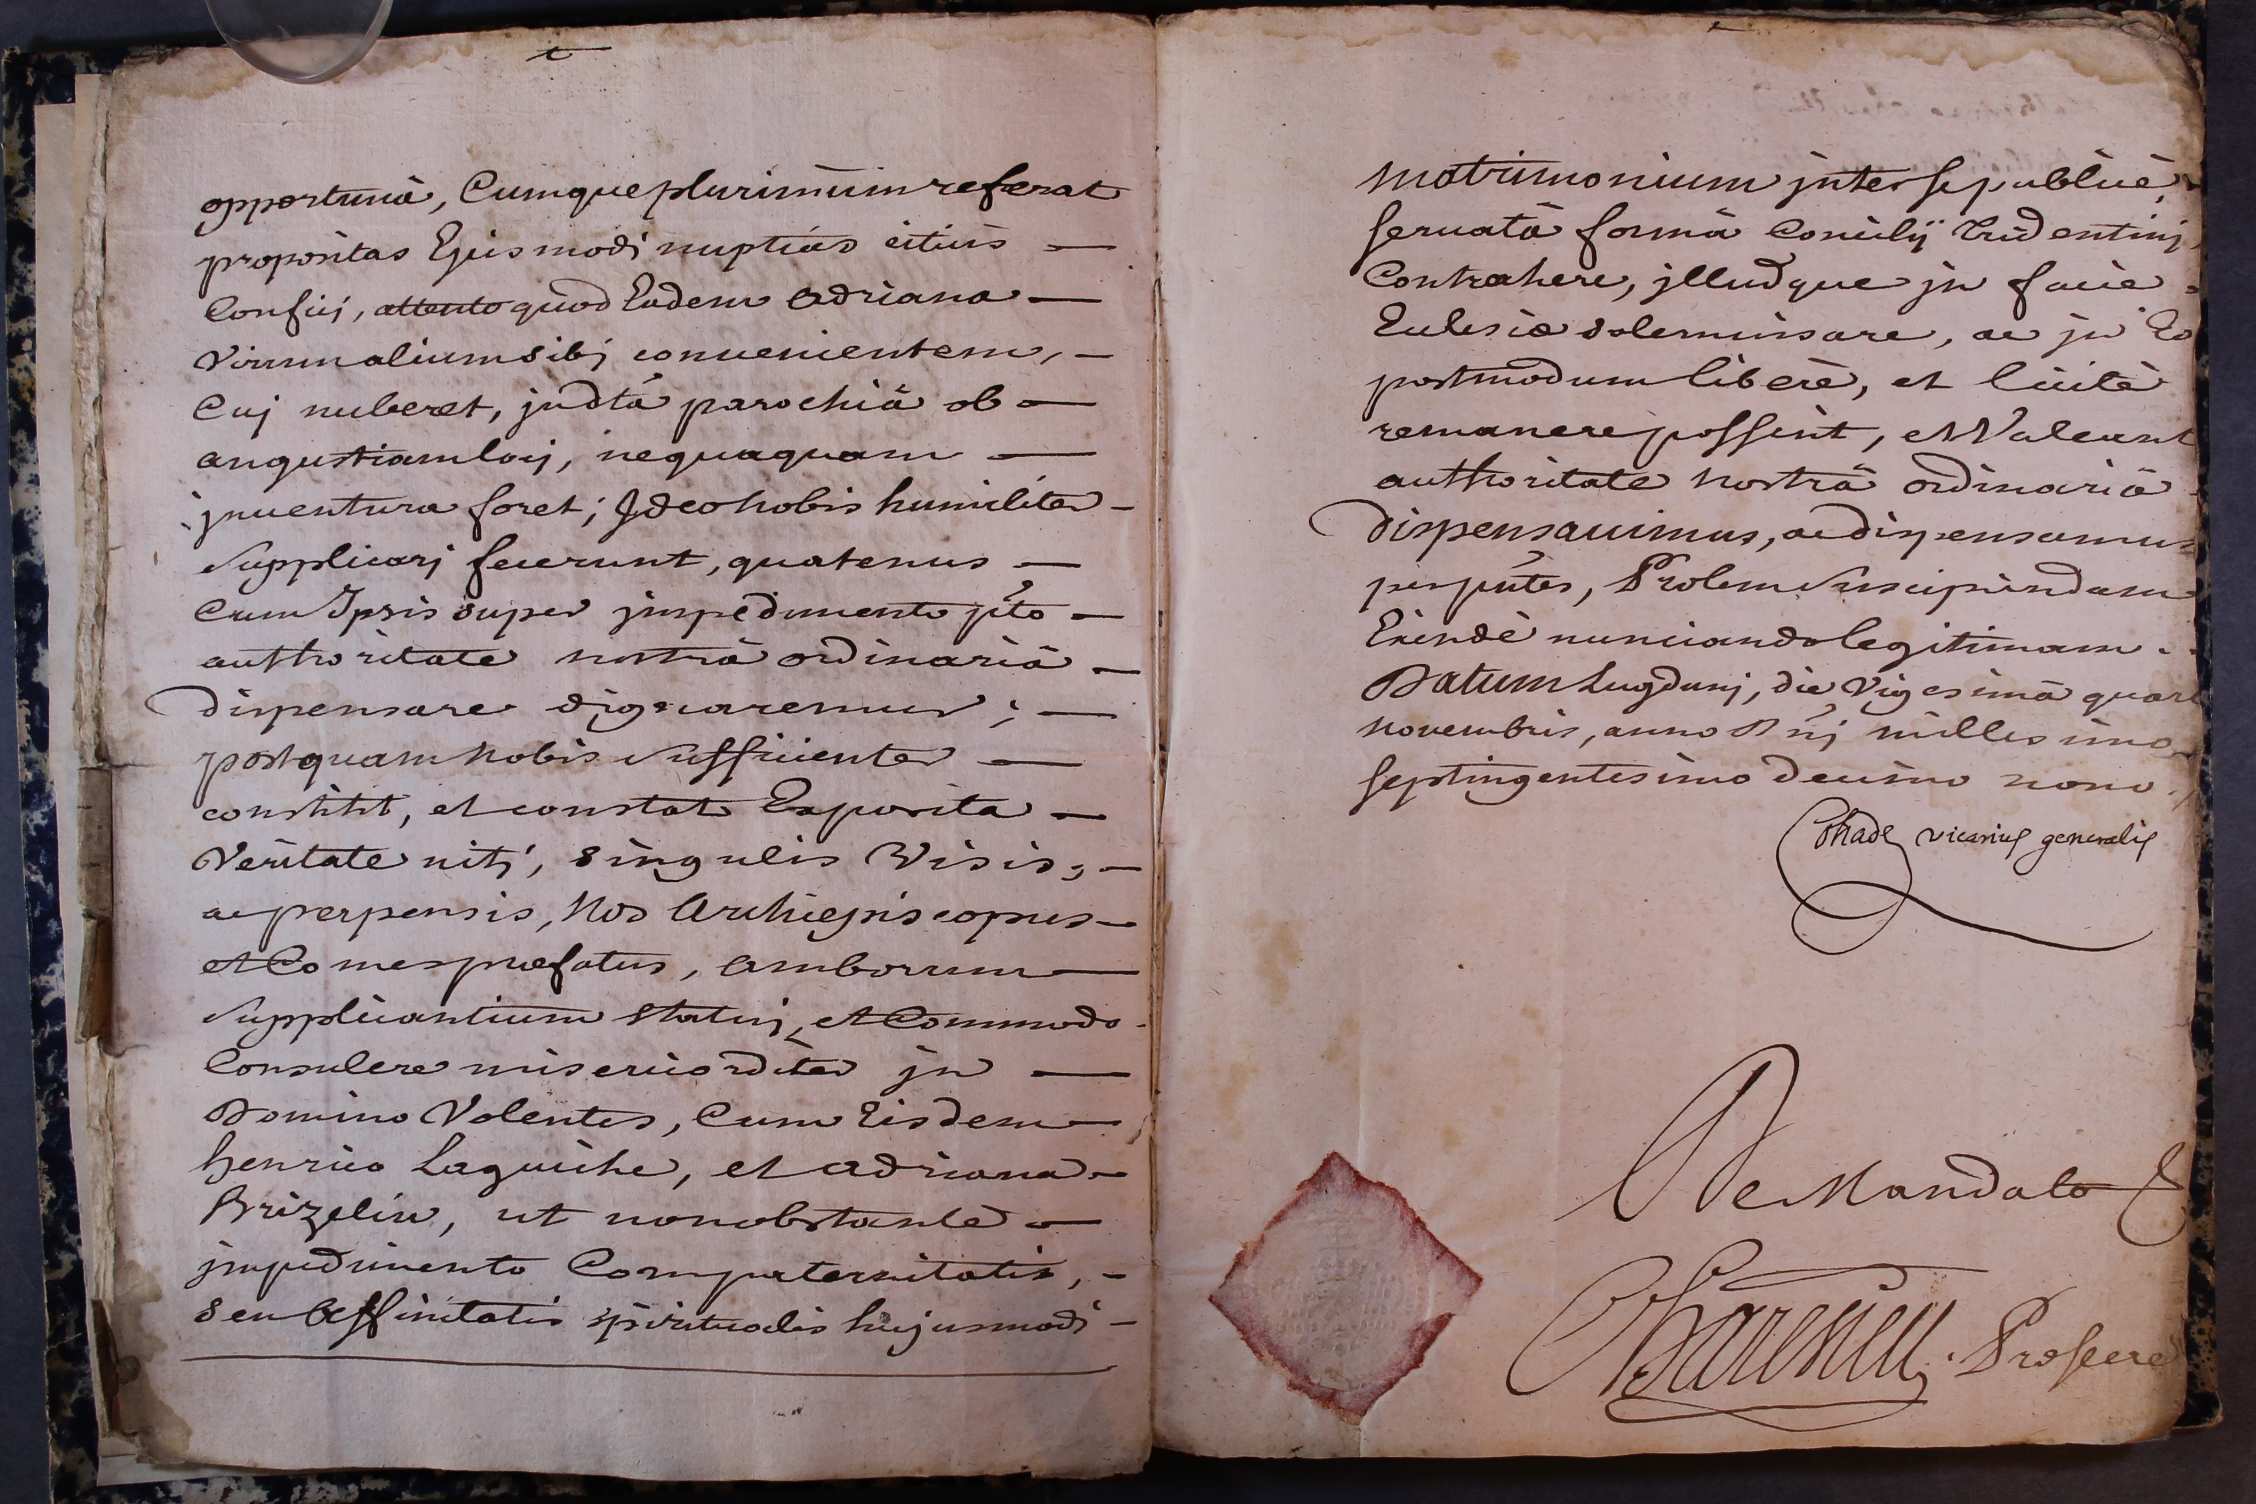 opportunâ, Cumque plurimùm referat
propositas Ejusmodi nuptias citius
Confici, attento quod Eadem Adriana
virum alium sibj convenientem,
Cuj nuberet, jndtâ parochiâ ob
angustiam locj, nequaquam
jnventura foret; Jdeo nobis humiliter
supplicarj fecerunt, quatenus
Cum Jpsis super jmpedimento pto
authoritate nostrâ ordinariâ
dispensare dignaremur;
postquam nobis sufficienter
constitit, et constat Exposita
Veritate nitj, singulis Visis,
ac perpensis, Nos Archiepiscopus
et Comes præfatus, amborum
supplicantium statuj, et Commodo
Consulere misericorditer jn
Domino Volentes, Cum Eisdem
henrico Laguiche, et Adriana
Brizelin, ut nonobstante
jmpedimento Compaternitatis,
seu Affinitatis spiritualis hujusmodi
Matrimonium jnter se publicè,
servatâ formâ Concilij Tridentinj
Contrahere, jlludque jn facie
Ecclesiæ solemnisare, ac jn Eo
postmodum liberè, et licitè
remanere possint, et Valeant
authoritate nostrâ ordinariâ
dispensavimus, ac dispensamus
per pntes, Prolem suscipiendam
Exindè nunciando legitimam.
Datum Lugdunj, die Vigesimâ quar
novembris, anno Dnj millesimo
septingentesimo decimo nono.
Cohade vicarius generalis
De Mandato
Prosecre